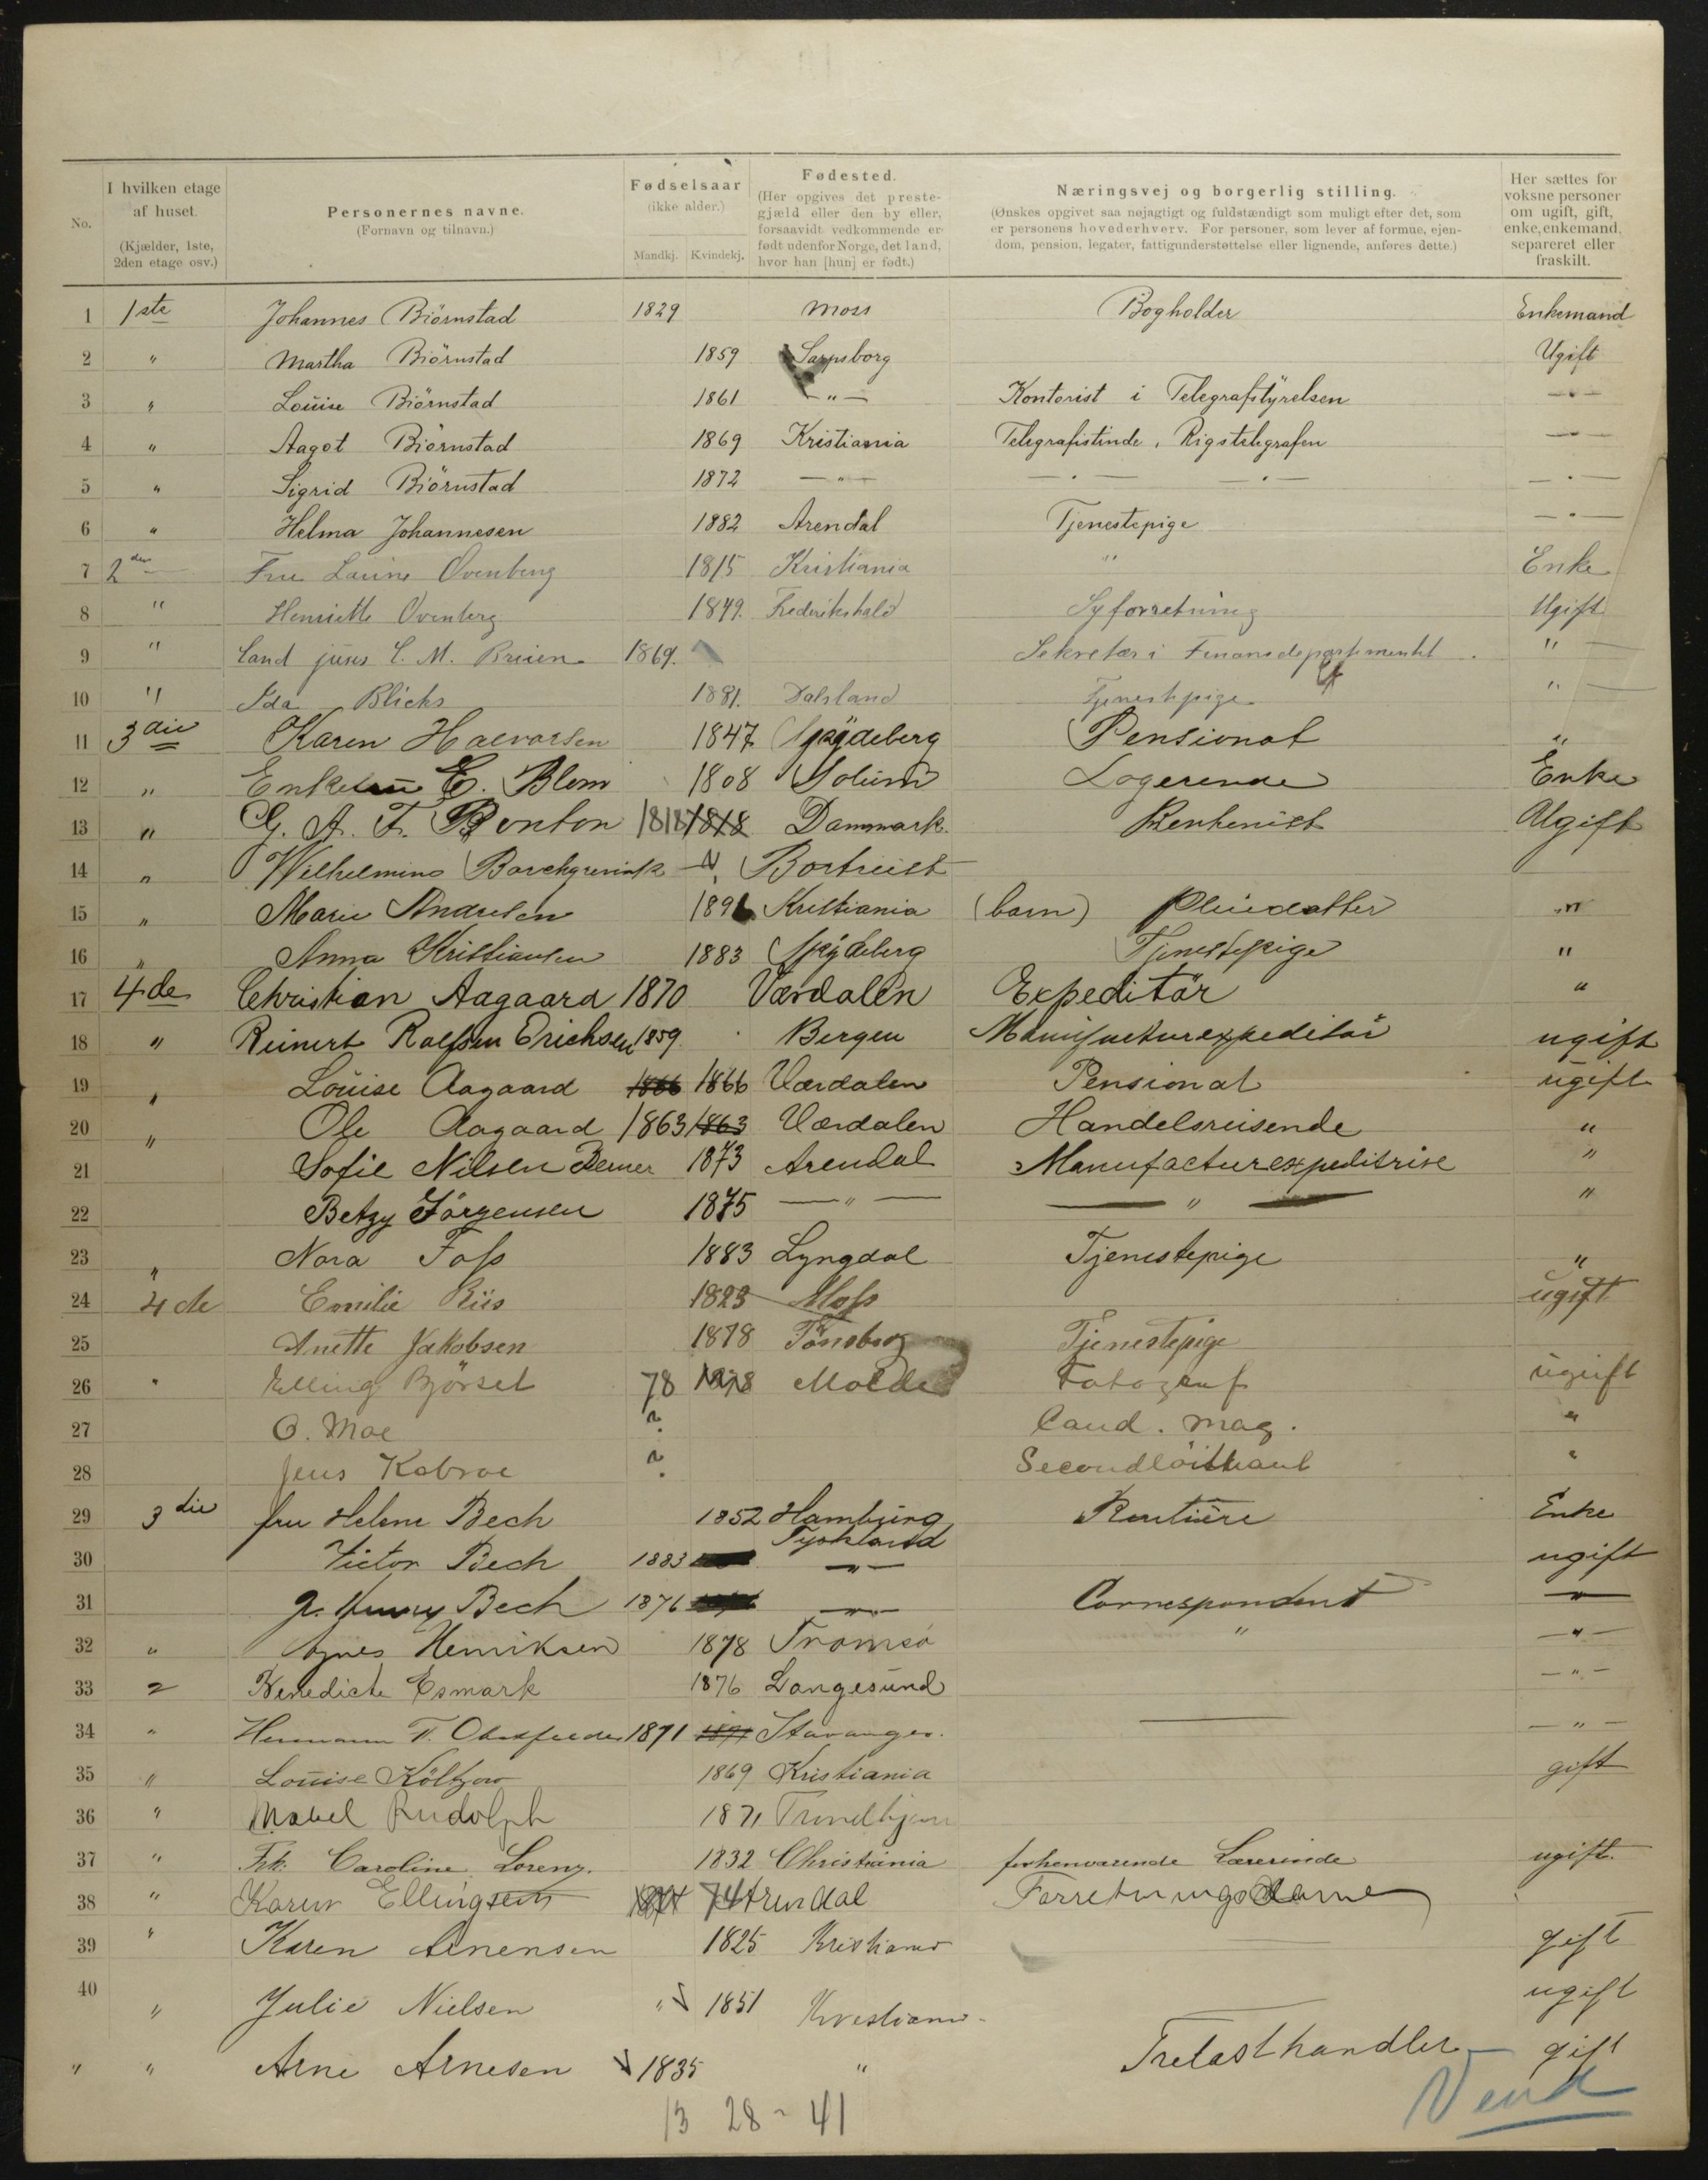 No.
I hvilken etage af huset. (Kjælder, 1ste, 2den etage osv.)
Personernes navne. (Fornavn og tilnavn.)
Fødselsaar (ikke alder.) Mandkj. Kvindekj.
Fødested. (Her opgives det prestegjæld eller den by eller, forsaavidt vedkommende er født udenfor Norge, det land, hvor han [hun] er født.)
Næringsvej og borgerlig stilling. (Ønskes opgivet saa nøjagtigt og fuldstændigt som muligt efter det, som er personens hovederhverv. For personer, som lever af formue, ejendom, pension, legater, fattigunderstøttelse eller lignende, anføres dette.)
Her sættes for voksne personer om ugift, gift, enke, enkemand, separeret eller fraskilt.
1 1ste Johannes Biörnstad 1829 Moss Bogholder Enkemand
2 " Martha Biörnstad 1859 Sarpsborg Ugift
3 " Louise Biörnstad 1861 — " — Kontorist i Telegrafstyrelsen — " —
4 " Aagot Biörnstad 1869 Kristiania Telegrafistinde, Rigstelegrafen — " —
5 " Sigrid Biörnstad 1872 — " — — " — — " — — " —
6 " Helma Johannesen 1882 Arendal Tjenestepige — " —
7 2den Fru Laurine Ovenberg 1815 Kristiania " Enke
8 " Henriette Ovenberg 1849. Frederikshald Syforretning Ugift
9 " Cand juris C. M. Bruen 1869. Sekretær i Finansdepartementet "
10 " Ida Blichs 1881. Dalsland Tjenestepige "
11 3die Karen Halvorsen 1847 Spydeberg Pensionat "
12 " Enkefru E. Blom 1808 Solum Logerende Enke
13 " G. A. F. Bonton 1818 1818 Danmark. Rentenist Ugift
14 " Wilhelmine Borchgrevink Bortreist
15 " Marie Andresen 1896 Kristiania (barn) Pleiedatter "
16 " Anna Kristiansen 1883 Spydeberg Tjenestepige "
17 4de Christian Aagaard 1870 Værdalen Expeditör "
18 " Reinert Rolfsen Erichsen 1859 Bergen Manufacturexpeditör ugift
19 " Louise Aagaard 1866 1866 Værdalen Pensionat ugift
20 " Ole Aagaard 1863 1863 Værdalen Handelsreisende "
21 Sofie Nilsen Bemer 1873 Arendal Manufacturexpeditrise "
22 Betzy Jörgensen 1875 — " — — " — "
23 " Nora Foss 1883 Lyngdal Tjenestepige "
24 4de Emilie Riis 1823 Moss ugift
25 Anette Jakobsen 1878 Tönsberg Tjenestepige
26 " Elling Björset 78 1878 Molde Fotograf ugift
27 O. Moe ? Cand. mag. "
28 Jens Kobroe ? Secondlöitnant "
29 3die fru Helene Bech 1852 Hamburg Tyskland Rentière Enke
30 Victor Bech 1883 — " — ugift
31 G. Henry Bech 1876 — " — Correspondent — " —
32 " Agnes Henriksen 1878 Tromsö " — " —
33 2 Benedicte Esmark 1876 Langesund — " —
34 " Hermann T. Obstfelder 1871 1871 Stavanger. — — " —
35 " Louise Költzow 1869 Kristiania gift
36 " Mabel Rudolph 1871 Trondhjem
37 " Frk. Caroline Lorenz. 1832 Christiania forhenværende Lærerinde ugift
38 " Karen Ellingsen 1874 74 Arendal Forretningsdame "
39 " Karen Arnensen 1825 Kristiania — gift
40 " Julie Nielsen " 1851 Kristiania — ugift
" " Arne Arnesen 1835 " Trelasthandler gift
13 28 - 41
Vend